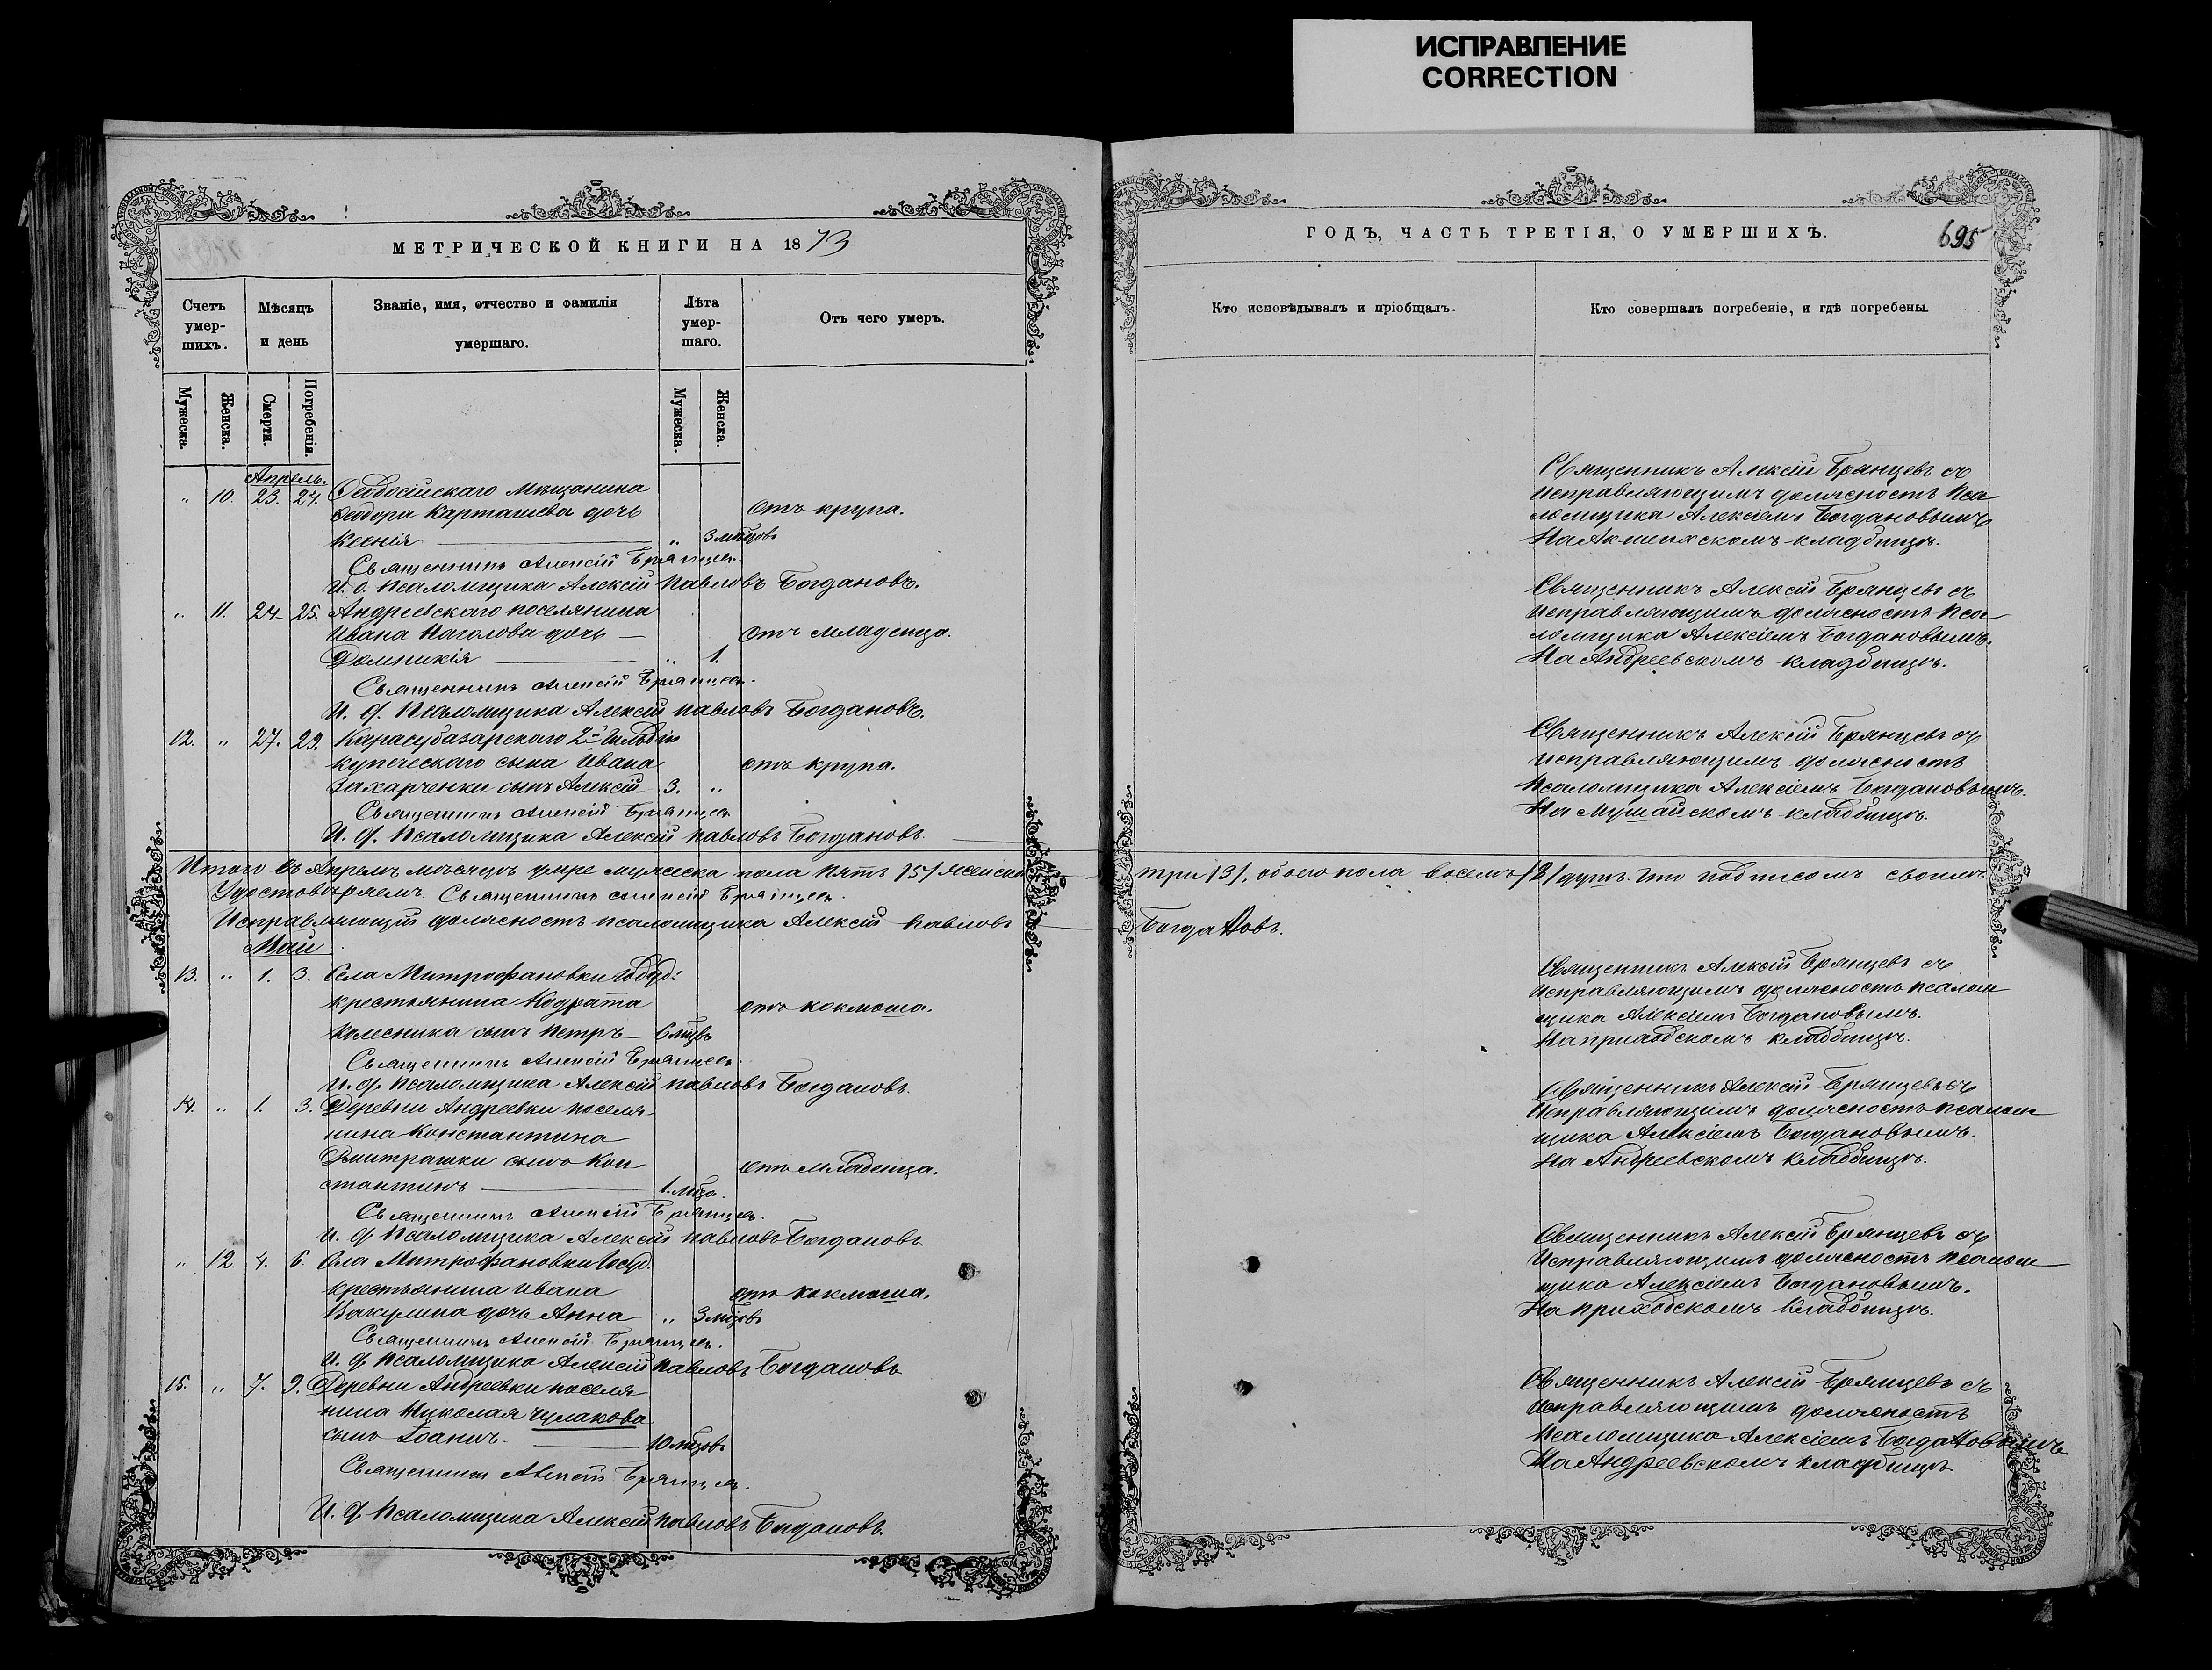 ИСПРАВЛЕНИЕ
CORRECTION
МЕТРИЧЕСКОЙ КНИГИ НА 1873
Счетъ умер-шихъ.
Мѣсяцъ и день
Званіе, имя, отчество и фамилія умершаго.
Лѣта умер-шаго.
Отъ чего умеръ.
Мужеска.
Женска.
Смерти.
Погребенія.
Мужеска.
Женска.
Апрѣль.
" 10. 23. 24. Феодосійскаго Мѣщанина
Феодора Карташева дочь отъ крупа.
Ксенія " 3 мѣсцовъ
Священникъ Алексій Брянцевъ.
И. д. Псаломщика Алексій Павловъ Богдановъ.
" 11. 24 25. Андреевскаго поселянина
Ивана Наголова дочь отъ младенца.
Домникія " 1.
Священникъ Алексій Брянцевъ.
И. д. Псаломщика Алексій Павловъ Богдановъ.
12. " 27. 29. Карасубазарскаго 2й Гильдіи
купеческаго сына Ивана отъ крупа.
Захарченки сынъ Алексій 3. "
Священникъ Алексій Брянцевъ
И. д. Псаломщика Алексій Павловъ Богдановъ.
Итого въ Апрелѣ мѣсяцѣ умре мужеска пола пять /5/ женска
Удостовѣряемъ. Священникъ Алексій Брянцевъ.
Исправляющій должность псаломщика Алексій Павловъ
Май
13. " 1. 3. Села Митрофановки
крестьянина Кодрата отъ коклюша.
Колесника сынъ Петръ 6 мѣсцовъ
Священникъ Алексій Брянцевъ.
И. д. Псаломщика Алексій Павловъ Богдановъ.
14. " 1. 3. Деревни Андреевки поселя-
нина Константина
Дмитрашки сынъ Кон отъ младенца.
стантинъ 1. мѣсца.
Священникъ Алексій Брянцевъ.
И. д. Псаломщика Алексій Павловъ Богдановъ
" 12. 4. 6. Села Митрофановки
крестьянина Ивана отъ коклюша.
Вакулина дочь Анна " 3 мѣсцовъ
Священникъ Алексій Брянцевъ.
И. д. Псаломщика Алексій Павловъ Богдановъ
15. " 7. 9. Деревни Андреевки поселя
нина Николая Чулакова
сынъ Іоаннъ. 10 мѣсцовъ
Священникъ Алексій Брянцевъ.
И. д. Псаломщика Алексій Павловъ Богдановъ.
ГОДЪ, ЧАСТЬ ТРЕТІЯ, О УМЕРШИХЪ.
695
Кто исповѣдывалъ и пріобщалъ.
Кто совершалъ погребеніе, и гдѣ погребены.
Священникъ Алексій Брянцевъ съ
исправляющимъ должность Пса
ломщика Алексіемъ Богдановымъ
На кладбищѣ.
Священникъ Алексій Брянцевъ съ
исправляющимъ должность Пса-
ломщика Алексіемъ Богдановымъ.
На Андреевскомъ кладбищѣ.
Священникъ Алексій Брянцевъ съ
исправляющимъ должность
Псаломщика Алексіемъ Богдановымъ.
На Мушайскомъ кладбищѣ.
три /3/, обоего пола восемь /8/ душъ. Что подписомъ своимъ
Богдановъ.
Священникъ Алексій Брянцевъ съ
исправляющимъ должность псалом
щика Алексіемъ Богдановымъ.
На приходскомъ кладбищѣ.
Священникъ Алексій Брянцевъ съ
Исправляющимъ должность псалом
щика Алексіемъ Богдановымъ.
На Андреевскомъ кладбищѣ.
Священникъ Алексій Брянцевъ съ
Исправляющимъ должность псалом
щика Алексіемъ Богдановымъ.
На приходскомъ кладбищѣ.
Священникъ Алексій Брянцевъ съ
исправляющимъ должность
Псаломщика Алексіемъ Богдановымъ
На Андреевскомъ кладбищѣ